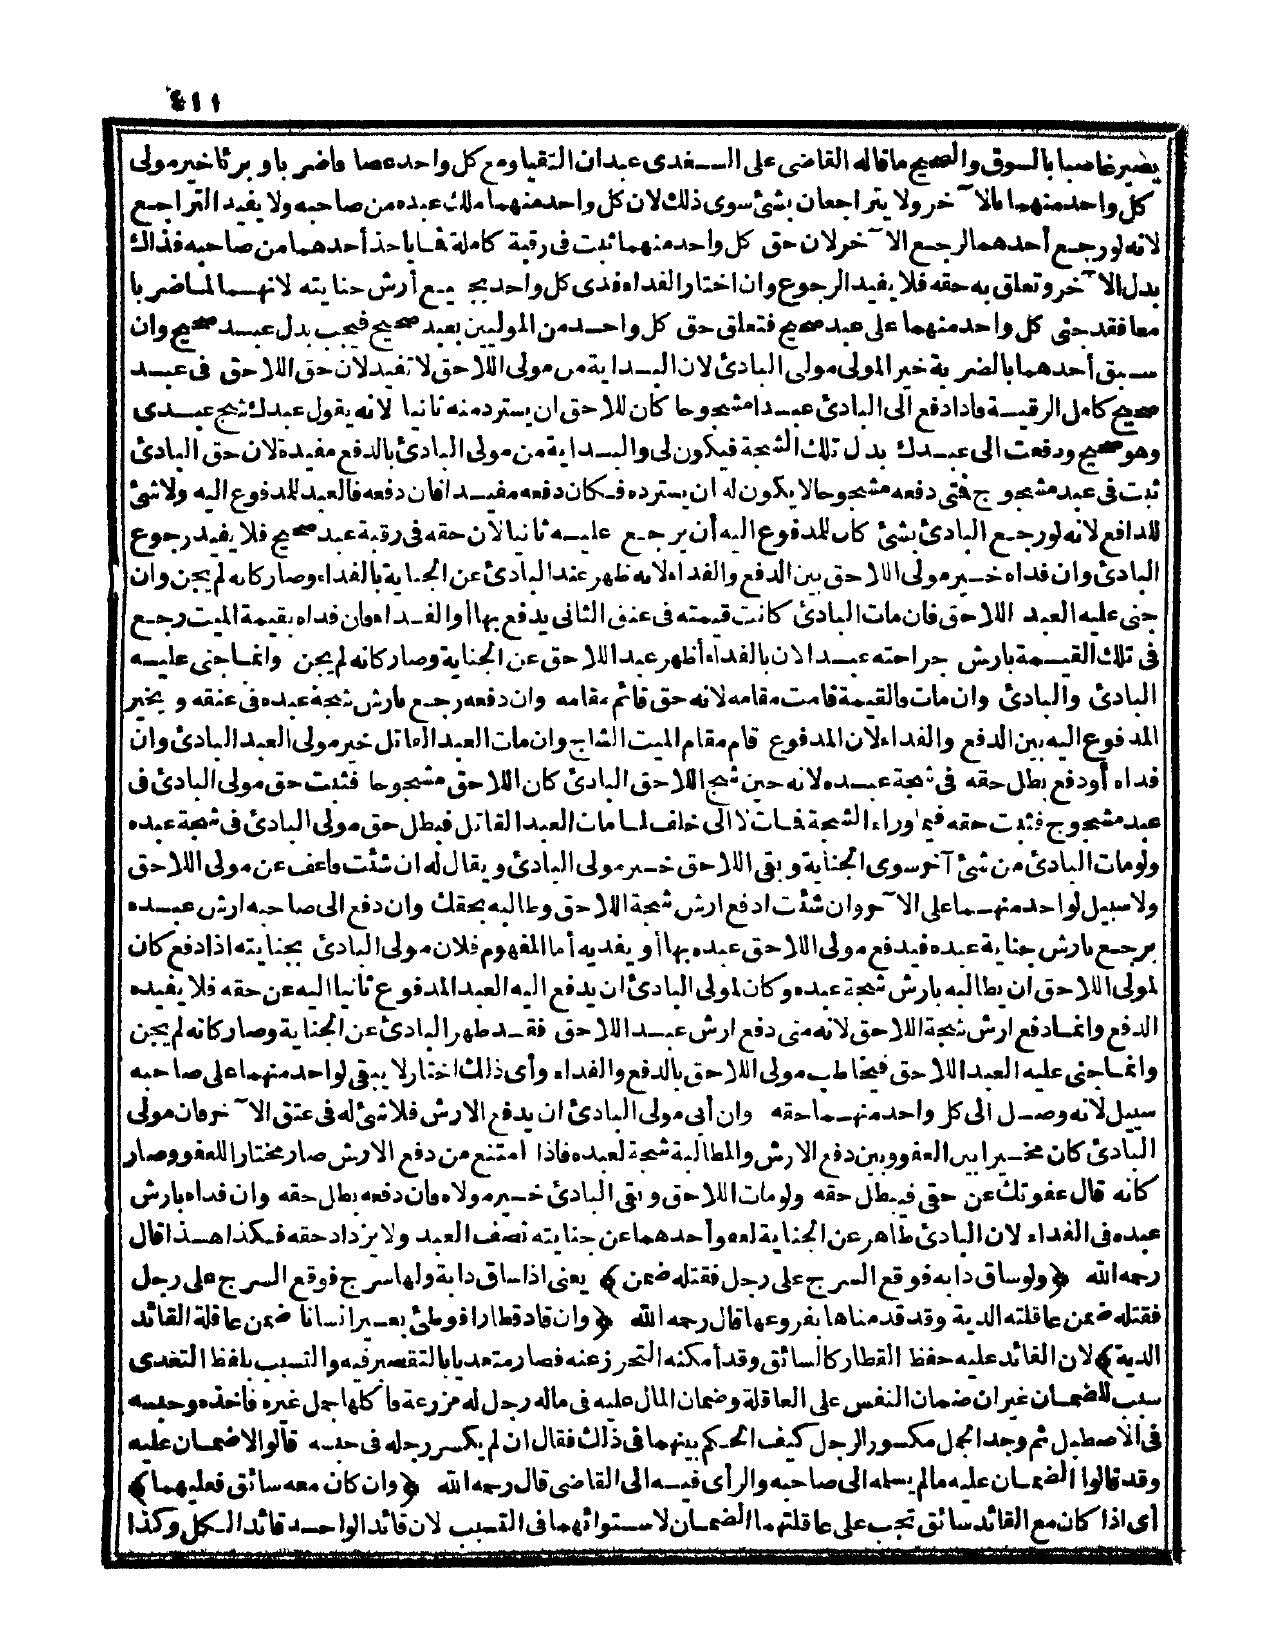 ٤١١
يضير غاصبا بالسوق والصحيح ما قاله القاضى على السغدى عبدان التقيا ومع كل واحد عصا فاضربا وبرئا خير مولى
كل واحد منهما بالآخر ولا يتراجعان بشئ سوى ذلك لان كل واحد منهما ملك عبده من صاحبه ولا يفيد التراجع
لانه لو رجع أحدهما لرجع الآخر لان حق كل واحد منهما ثبت فى رقبة كاملة فما ياخذ أحدهما من صاحبه فذاك
بدل الآخر وتعلق به حقه فلا يفيد الرجوع وان اختار الفداء فدى كل واحد بجميع أرش جنايته لانهما لما ضربا
معا فقد جنى كل واحد منهما على عبد صحيح فتعلق حق كل واحد من الموليين بعبد صحيح فيجب بدل عبد صحيح وان
سبق أحدهما بالضربة خير المولى مولى البادئ لان البداية من مولى اللاحق لا تفيد لان حق اللاحق فى عبد
صحيح كامل الرقبة فاذا دفع الى البادئ عبدا مشجوحا كان للاحق ان يسترد منه ثانيا لانه يقول عبدك شج عبدى
وهو صحيح ودفعت الى عبدك بدل تلك الشجة فيكون لى والبداية من مولى البادئ بالدفع مفيدة لان حق البادئ
ثبت فى عبد مشجوج فمتى دفعه مشجوجا لا يكون له ان يسترده فكان دفعه مفيدا فان دفعه فالعبد للمدفوع اليه ولا شئ
للدافع لانه لو رجع البادئ بشئ كان للمدفوع اليه أن يرجع عليه ثانيا لان حقه فى رقبة عبد صحيح فلا يفيد رجوع
البادئ وان فداه خير مولى اللاحق بين الدفع والفداء لانه ظهر عند البادئ عن الجناية بالفداء وصار كانه لم يجن وان
جنى عليه العبد اللاحق فان مات البادئ كانت قيمته فى عنق الثانى يدفع بها أو الفداء فان فداه بقيمة الميت رجع
فى تلك القيمة بارش جراحته عبدا لان بالفداء أظهر عبد اللاحق عن الجناية وصار كانه لم يجن وانما جنى عليه
البادئ والبادئ وان مات فالقيمة قامت مقامه لانه حق قائم مقامه وان دفعه رجع بارش شجة عبده فى عنقه ويخير
المدفوع اليه بين الدفع والفداء لان المدفوع قام مقام الميت الشاج وان مات العبد القاتل خير مولى العبد البادئ وان
فداه أو دفع بطل حقه فى شجة عبده لانه حين شج اللاحق البادئ كان اللاحق مشجوجا فثبت حق مولى البادئ فى
عبد مشجوج فثبت حقه فيما وراء الشجة فمات لا الى خلف لما مات العبد القاتل فبطل حق مولى البادئ فى شجة عبده
ولو مات البادئ من شئ آخر سوى الجناية وبقى اللاحق خير مولى البادئ ويقال له ان شئت فاعف عن مولى اللاحق
ولا سبيل لواحد منهما على الآخر وان شئت ادفع ارش شجة اللاحق وطالبه بحقك وان دفع الى صاحبه ارش عبده
يرجع بارش جناية عبده فيدفع مولى اللاحق عبده بها أو يفديه أما المفهوم فلان مولى البادئ بجنايته اذا دفع كان
لمولى اللاحق ان يطالبه بارش شجة عبده وكان لمولى البادئ ان يدفع اليه العبد المدفوع ثانيا اليه عن حقه فلا يفيده
الدفع وانما دفع ارش شجة اللاحق لانه متى دفع ارش عبد اللاحق فقد طهر البادئ عن الجناية وصار كانه لم يجن
وانما جنى عليه العبد اللاحق فيخاطب مولى اللاحق بالدفع والفداء وأى ذلك اختار لا يبقى لواحد منهما على صاحبه
سبيل لانه وصل الى كل واحد منهما حقه وان أبى مولى البادئ ان يدفع الارش فلا شئ له فى عتق الآخر فان مولى
البادئ كان مخيرا بين العفو وبين دفع الارش والمطالبة شجة لعبده فاذا امتنع من دفع الارش صار مختارا للعفو وصار
كانه قال عفوتك عن حقى فيبطل حقه ولو مات اللاحق وبقى البادئ خير مولاه فان دفعه بطل حقه وان فداه بارش
عبده فى الفداء لان البادئ طاهر عن الجناية لعفو أحدهما عن جنايته نصف العبد ولا يزداد حقه فيكذا هذا قال
رحمه الله ﴿ولو ساق دابة فوقع السرج على رجل فقتله ضمن﴾ يعنى اذا ساق دابة ولها سرج فوقع السرج على رجل
فقتله ضمن عاقلته الدية وقد قدمناها بفروعها قال رحمه الله ﴿وان قاد قطارا فوطئ بعير انسانا ضمن عاقلة القائد
الدية﴾ لان القائد عليه حفظ القطار كالسائق وقد أمكنه التحرز عنه فصار متعديا بالتقصير فيه والتسبب بلفظ التعدى
سبب للضمان غير ان ضمان النفس على العاقلة وضمان المال عليه فى ماله رجل له مزرعة فاكلها جمل غيره فأخذه وحبسه
فى الاصطبل ثم وجد الجمل مكسور الرجل كيف الحكم بينهما فى ذلك فقال ان لم يكسر رجله فى حبسه قالوا لا ضمان عليه
وقد قالوا الضمان عليه ما لم يسلمه الى صاحبه والرأى فيه الى القاضى قال رحمه الله ﴿وان كان معه سائق فعليهما﴾
أى اذا كان مع القائد سائق تجب على عاقلتهما الضمان لاستوائهما فى التسبب لان قائد الواحد قائد الكل وكذا